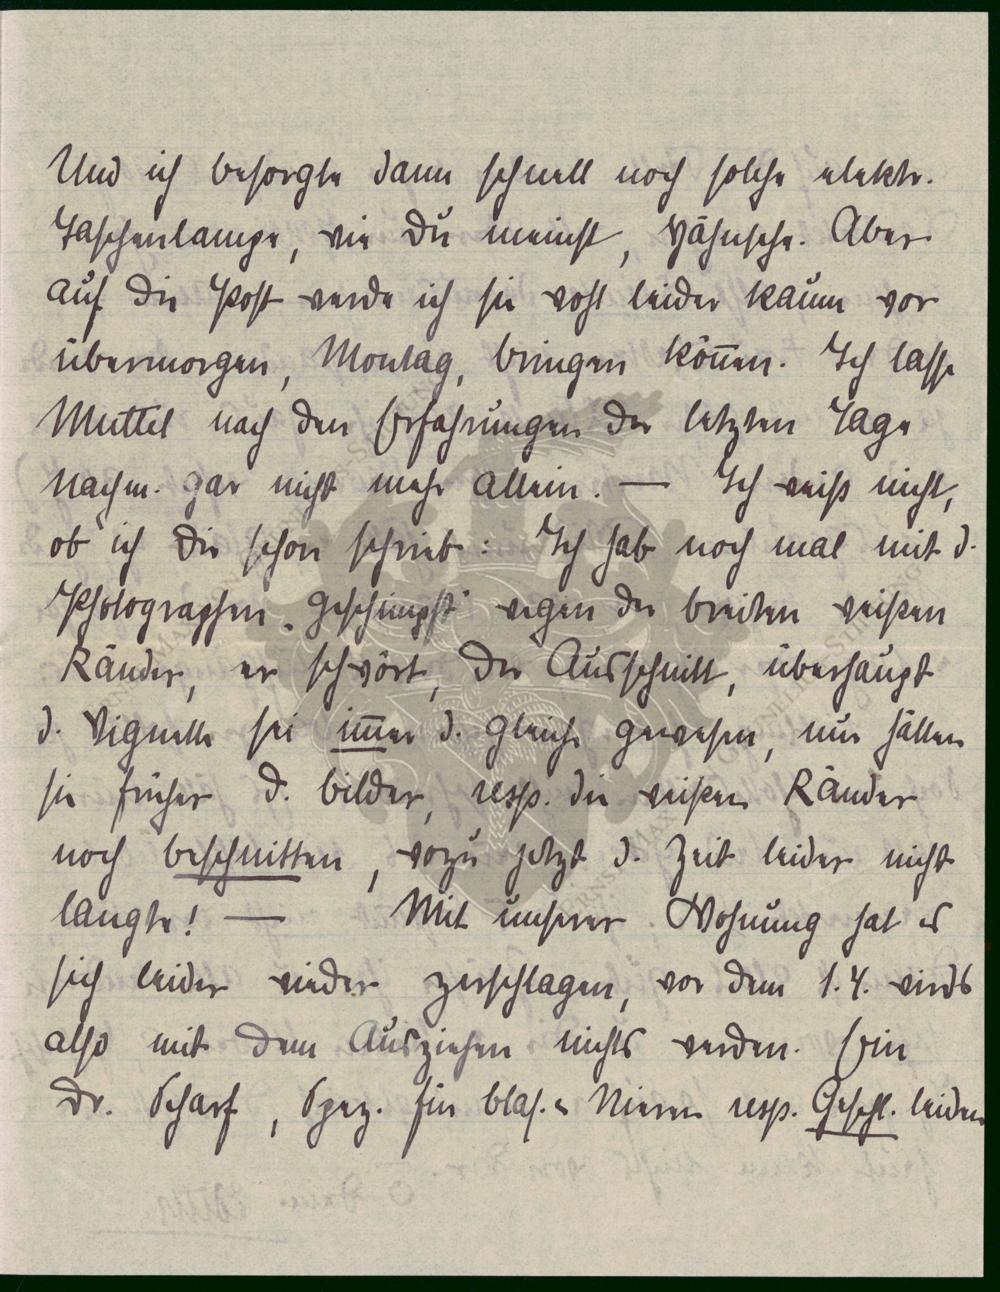 Und ich besorgte dann schnell noch solche elektr.
Taschenlampe, wie Du meinst, Hähnsche. Aber
auf die Post werde ich sie wohl leider kaum vor
übermorgen, Montag, bringen kön̄en. Ich lasse
Muttel nach den Erfahrungen der letzten Tage
nachm. gar nicht mehr allein. — Ich weiß nicht,
ob ich Dir schon schrieb: Ich hab noch mal mit d.
Photographen „geschimpft" wegen der breiten weißen
Ränder, er schwört, der Ausschnitt, überhaupt
d. Vignette sei im̄er d. gleiche gewesen, nur hätten
sie früher d. bilder, resp. die weißen Ränder
noch beschnitten, wozu jetzt d. Zeit leider nicht
langte! — Mit unserer Wohnung hat es
sich leider wieder zerschlagen, vor dem 1.4. wirds
also mit dem Ausziehen nichts werden. Ein
Dr. Scharf, Spez. für blas. u Nieren resp. Geschl. leiden